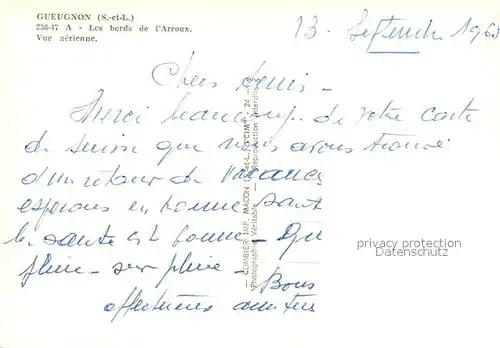 GUEUGNON (S.-et-L.)
236-47 A - Les bords de l'Arroux.
Vue aérienne.
13 Septembre 1963
Chers Amis -
Merci beaucoup de votre carte
de suisse que nous avons trouvé
retour de vacances
espérons en bonne santé
la santé est bonne -
pluie - sur pluie - Bons
affectueuses amitiés
— COMBIER IMP. MACON (S.-et-L.) "CIM" - 24
Photographie Véritable - Reproduction Interdite
privacy protection
Datenschutz